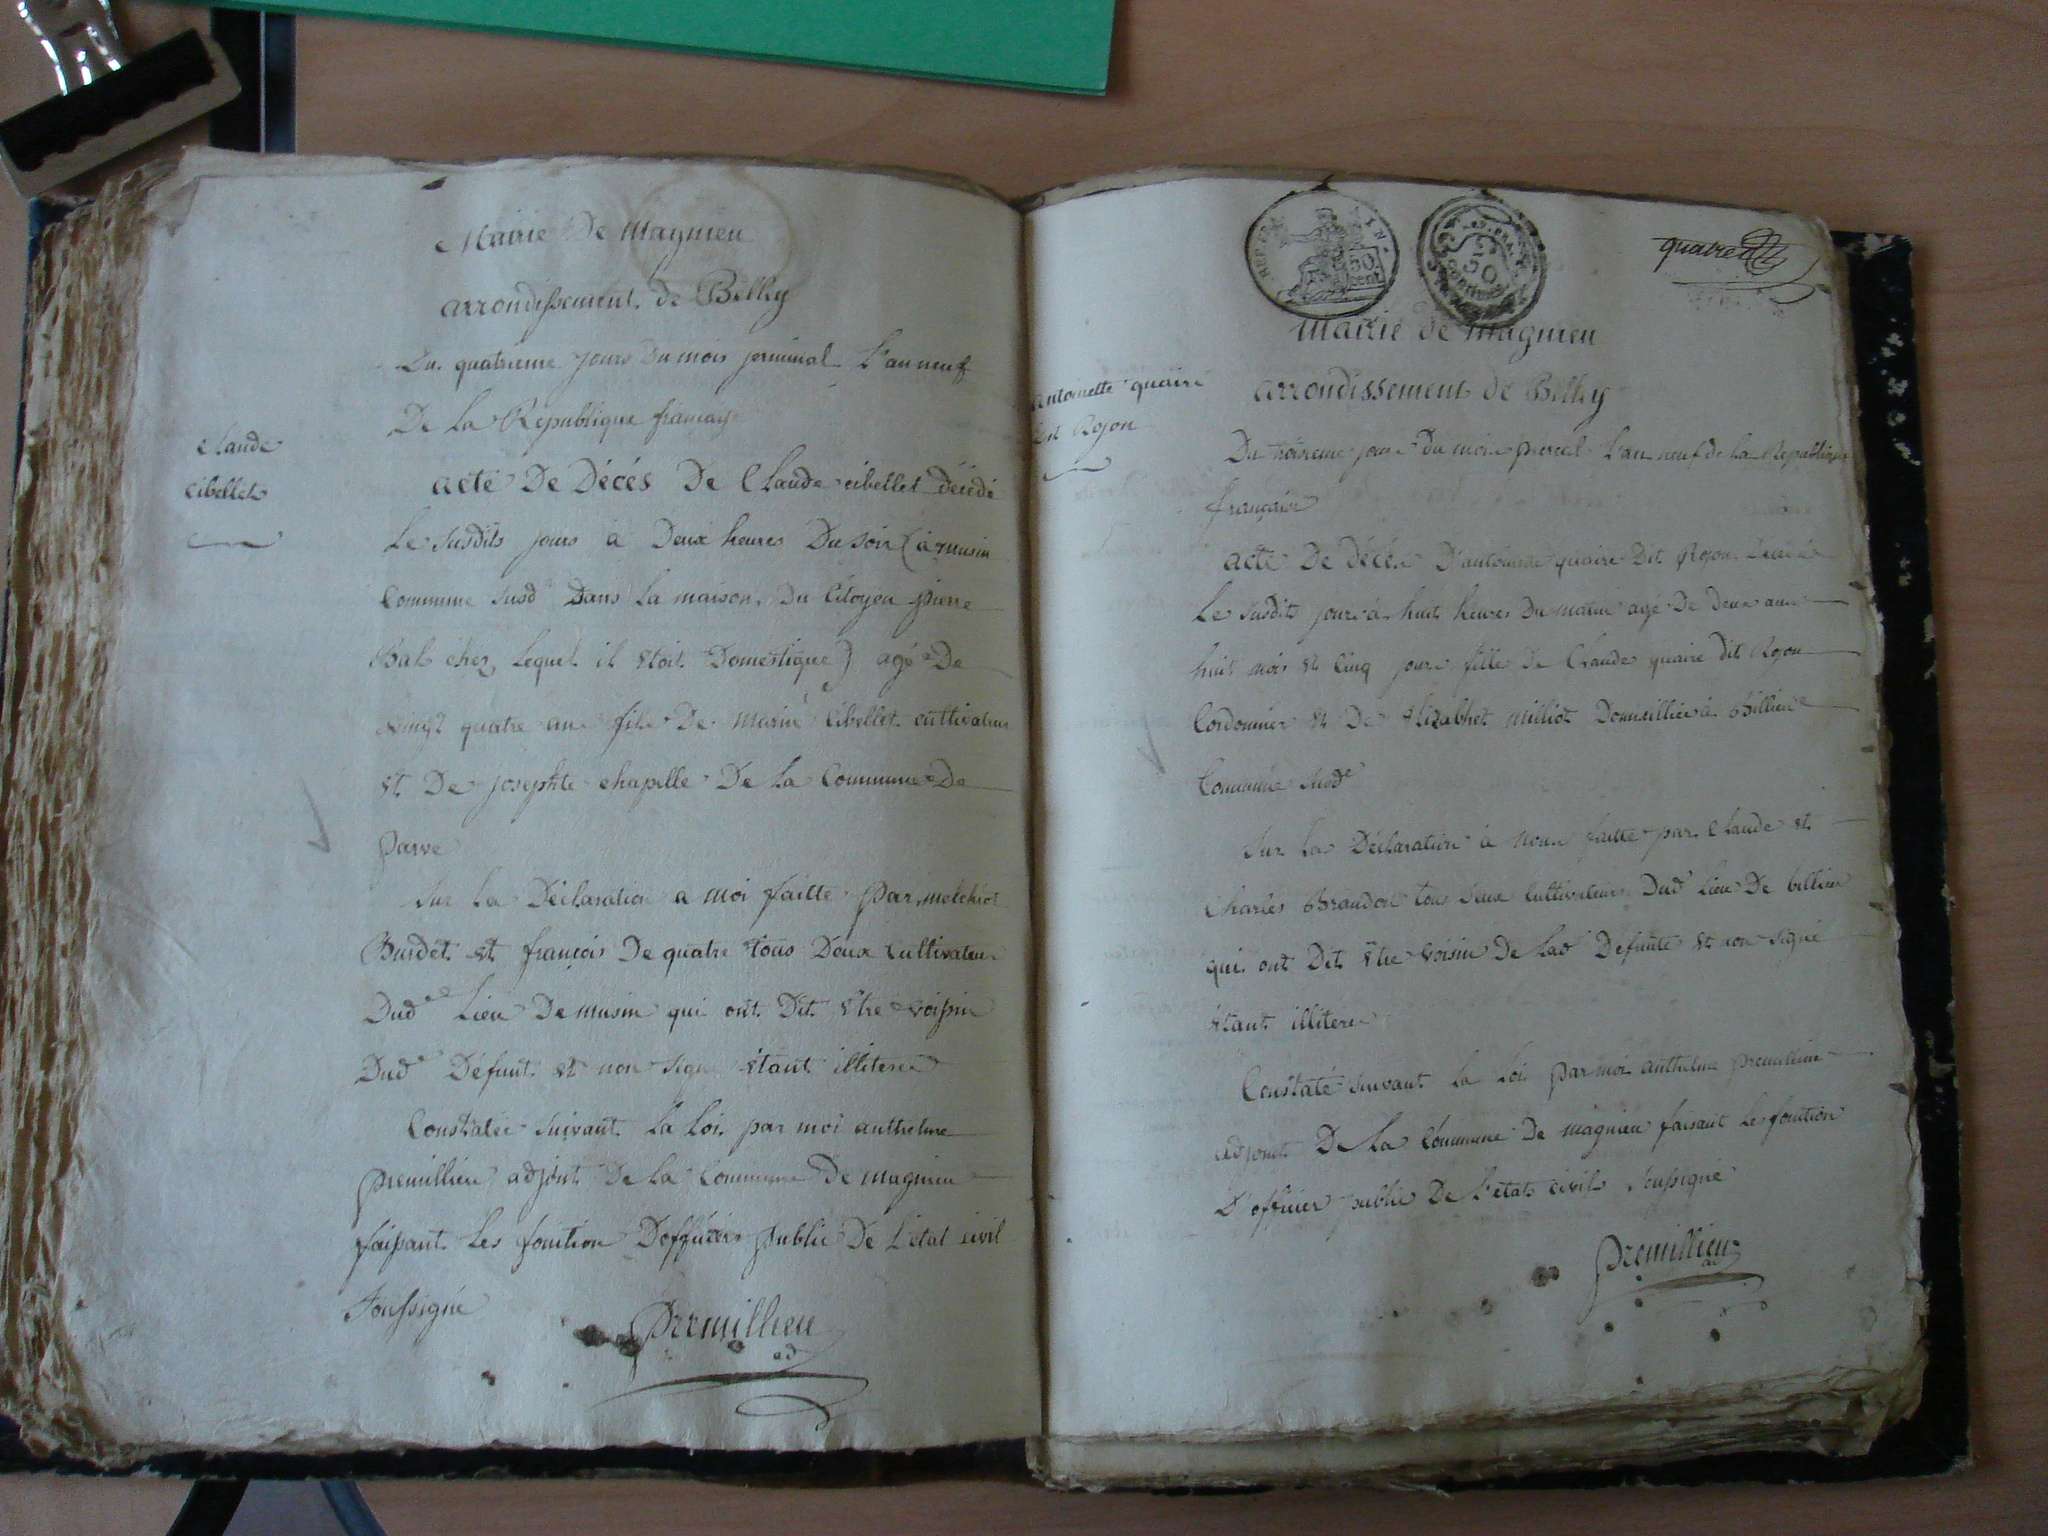 Mairie De magnieu
arrondissement de Belley
Du quatrieme jours du mois jerminal L'an neuf
De la République françays
Claude
Cibellet
acte De Décés De Claude cibellet décédé
Le susdits jours à Deux heures Du soir (à musin
Commune susd dans la maison Du Citoyen pierre
Bal chez lequel il étoit Domestique) agé De
vingt quatre ans fils De marin Cibellet cultivateur
et De josephte chapelle De la Commune De
parve
Sur la Déclaration a moi faitte par melchiot
Burdet et françois De quatre tous Deux Cultivateur
Dud Lieu De musin qui ont Dit être voisin
Dud Défunt et non signé étant illiteré
Constatée suivant la loi par moi anthelme
premillieu adjoint De la Commune De magnieu
faisant les fonction D'officier public De L'etat civil
soussigné
premillieu
ad
REP. FRA 50 cent
50
quatre
mairie de magnieu
arrondissement de Belley
antoinette quaire
dit Rojon
Du troiseme jour du mois L'an neuf de la République
française
acte De décés D'antoinette quaire Dit Rojon décédé
Le susdit jours à huit heures Du matin agé De Deux ans
huit mois et Cinq jours fille De Claude quaire dit Rojon
Cordonnier et De Elizabhet milliot Domicilliés à billieu
Commune susd
Sur la Déclaration à nous faitte par Claude et
Charles Brandon tous deux cultivateur Dud Lieu De billieu
qui ont Dit être voisin De lad Defunte et non signé
étant illiteré
Constaté suivant la loi par moi anthelme premillieu
adjoint De la Commune De magnieu faisant les fonction
D'officier public De L'etat civil soussigné
premillieu
ad